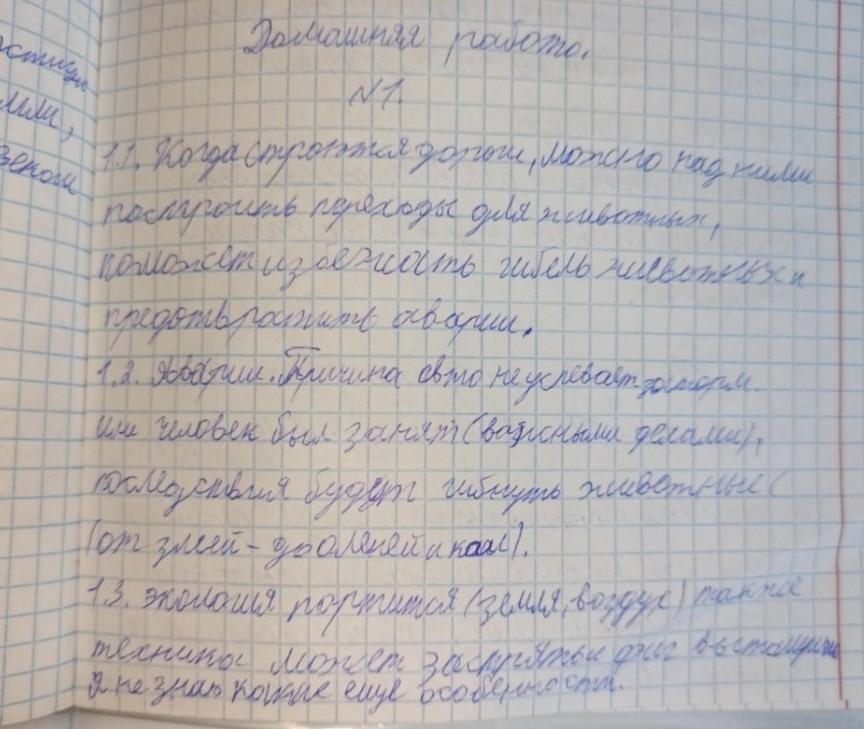 Домашняя работа.
N1.
1.1. Когда строются дороги, можно над ними
построить переходы для животных,
поможет избежать гибель животных и
предотвратить аварии.
1.2. Аварии. Причина авто не успевает заторм.
или человек был занят (важными делами),
последствия будут гибнуть животные (
(от змей - до оленей и коал).
1.3. экология портится (земля, воздух) также
техника может застрять и фиг вытащишь
Я не знаю какие еще особенности.